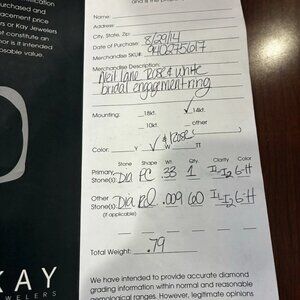 and is the prope
Name:
Address:
City, State, Zip:
Date of Purchase: 8/29/14
Merchandise SKU#: 940275617
Merchandise Description:
Neil Lane Rose & White
bridal engagement ring
Mounting: 18kt. ✓ 14kt.
10kt. other
Color: Y ✓ & Rose W TT
Stone Shape Wt. Qty. Clarity Color
Primary
Stone(s): Dia PC 33 1 I1-I2 G-H
Other
Stone(s): Dia Rd .009 60 I1-I2 G-H
(if applicable)
Total Weight: .79
We have intended to provide accurate diamond
grading information within normal and reasonable
gemological ranges. However, legitimate opinions
ification
urchased and
acement price
s or Kay Jewelers
t constitute an
or is it intended
osable value.
KAY
JEWELERS